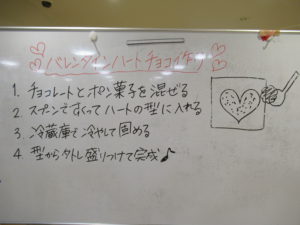 バレンタインハートチョコ作り
1. チョコレートとポン菓子を混ぜる
2. スプーンですくってハートの型に入れる
3. 冷蔵庫で冷やして固める
4. 型から外し盛りつけて完成♪